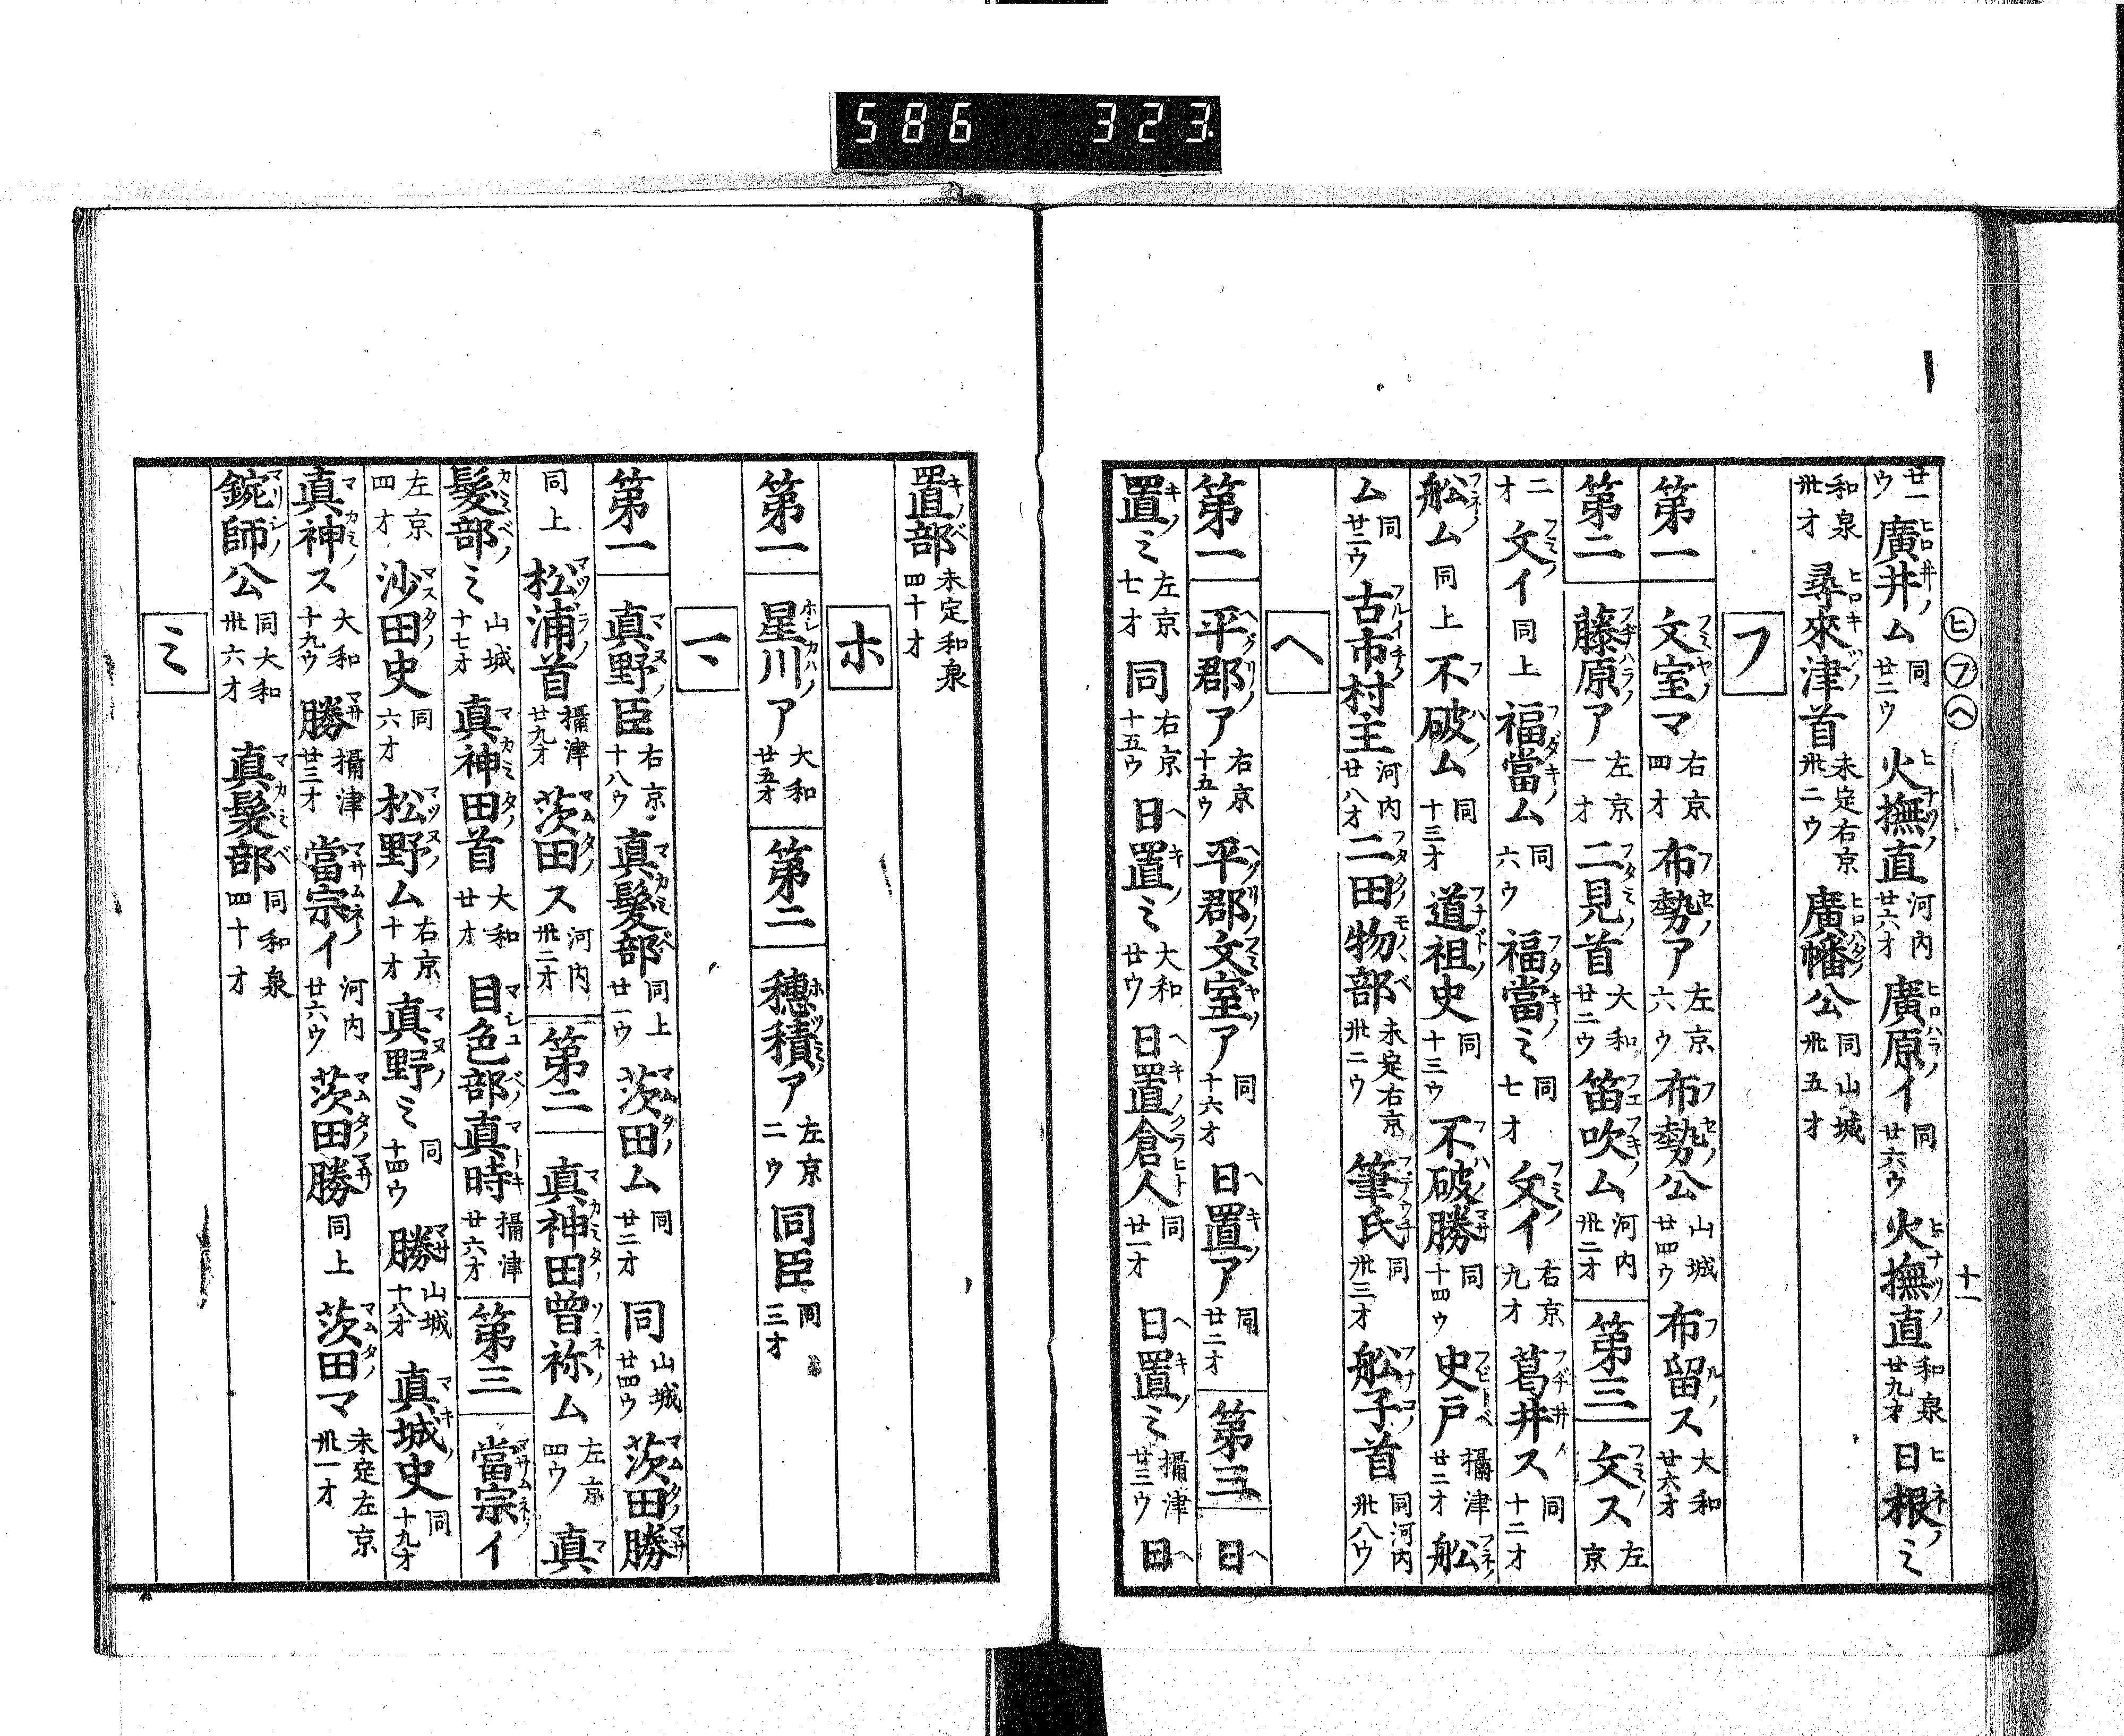 586 323
ヒ フ ヘ 十一
廿一ウ 廣井ム 同廿二ウ 火撫直 河内廿六オ 廣原イ 同廿六ウ 火撫直 和泉廿九オ 日根ミ
和泉卅オ 尋來津首 未定右京卅二ウ 廣幡公 同山城卅五オ
フ
第一 文室マ 右京四オ 布勢ア 左京六ウ 布勢公 山城廿四ウ 布留ス 大和廿六オ
第二 藤原ア 左京一オ 二見首 大和廿二ウ 笛吹ム 河内卅二オ 第三 文ス 左京
二オ 文イ 同上 福當ム 同六ウ 福當ミ 同七オ 文イ 右京九オ 葛井ス 同十二オ
舩ム 同上 不破ム 同十三オ 道祖史 同十三ウ 不破勝 同十四ウ 史戸 攝津廿二オ 舩
ム 同廿三ウ 古市村主 河内廿八オ 二田物部 未定右京卅二ウ 筆氏 同卅三オ 舩子首 同河内卅八ウ
ヘ
第一 平郡ア 右京十五ウ 平郡文室ア 同十六オ 日置ア 同廿二オ 第三 日
置ミ 左京七オ 同 右京十五ウ 日置ミ 大和廿ウ 日置倉人 同廿一オ 日置ミ 攝津廿三ウ 日
置部 未定和泉四十オ
ホ
第一 星川ア 大和廿五オ 第二 穗積ア 左京二ウ 同臣 同三オ
マ
第一 真野臣 右京十八ウ 真髮部 同上廿一ウ 茨田ム 同廿二オ 同 山城廿四ウ 茨田勝
同上 松浦首 攝津廿九オ 茨田ス 河内卅二オ 第二 真神田曽祢ム 左京四ウ 真
髮部ミ 山城十七オ 真神田首 大和廿オ 目色部真時 攝津廿六オ 第三 當宗イ
左京四オ 沙田史 同六オ 松野ム 右京十オ 真野ミ 同十四ウ 勝 山城十八オ 真城史 同十九オ
真神ス 大和十九ウ 勝 攝津廿三オ 當宗イ 河内廿六ウ 茨田勝 同上 茨田マ 未定左京卅一オ
鋺師公 同大和卅六オ 真髮部 同和泉四十オ
ミ